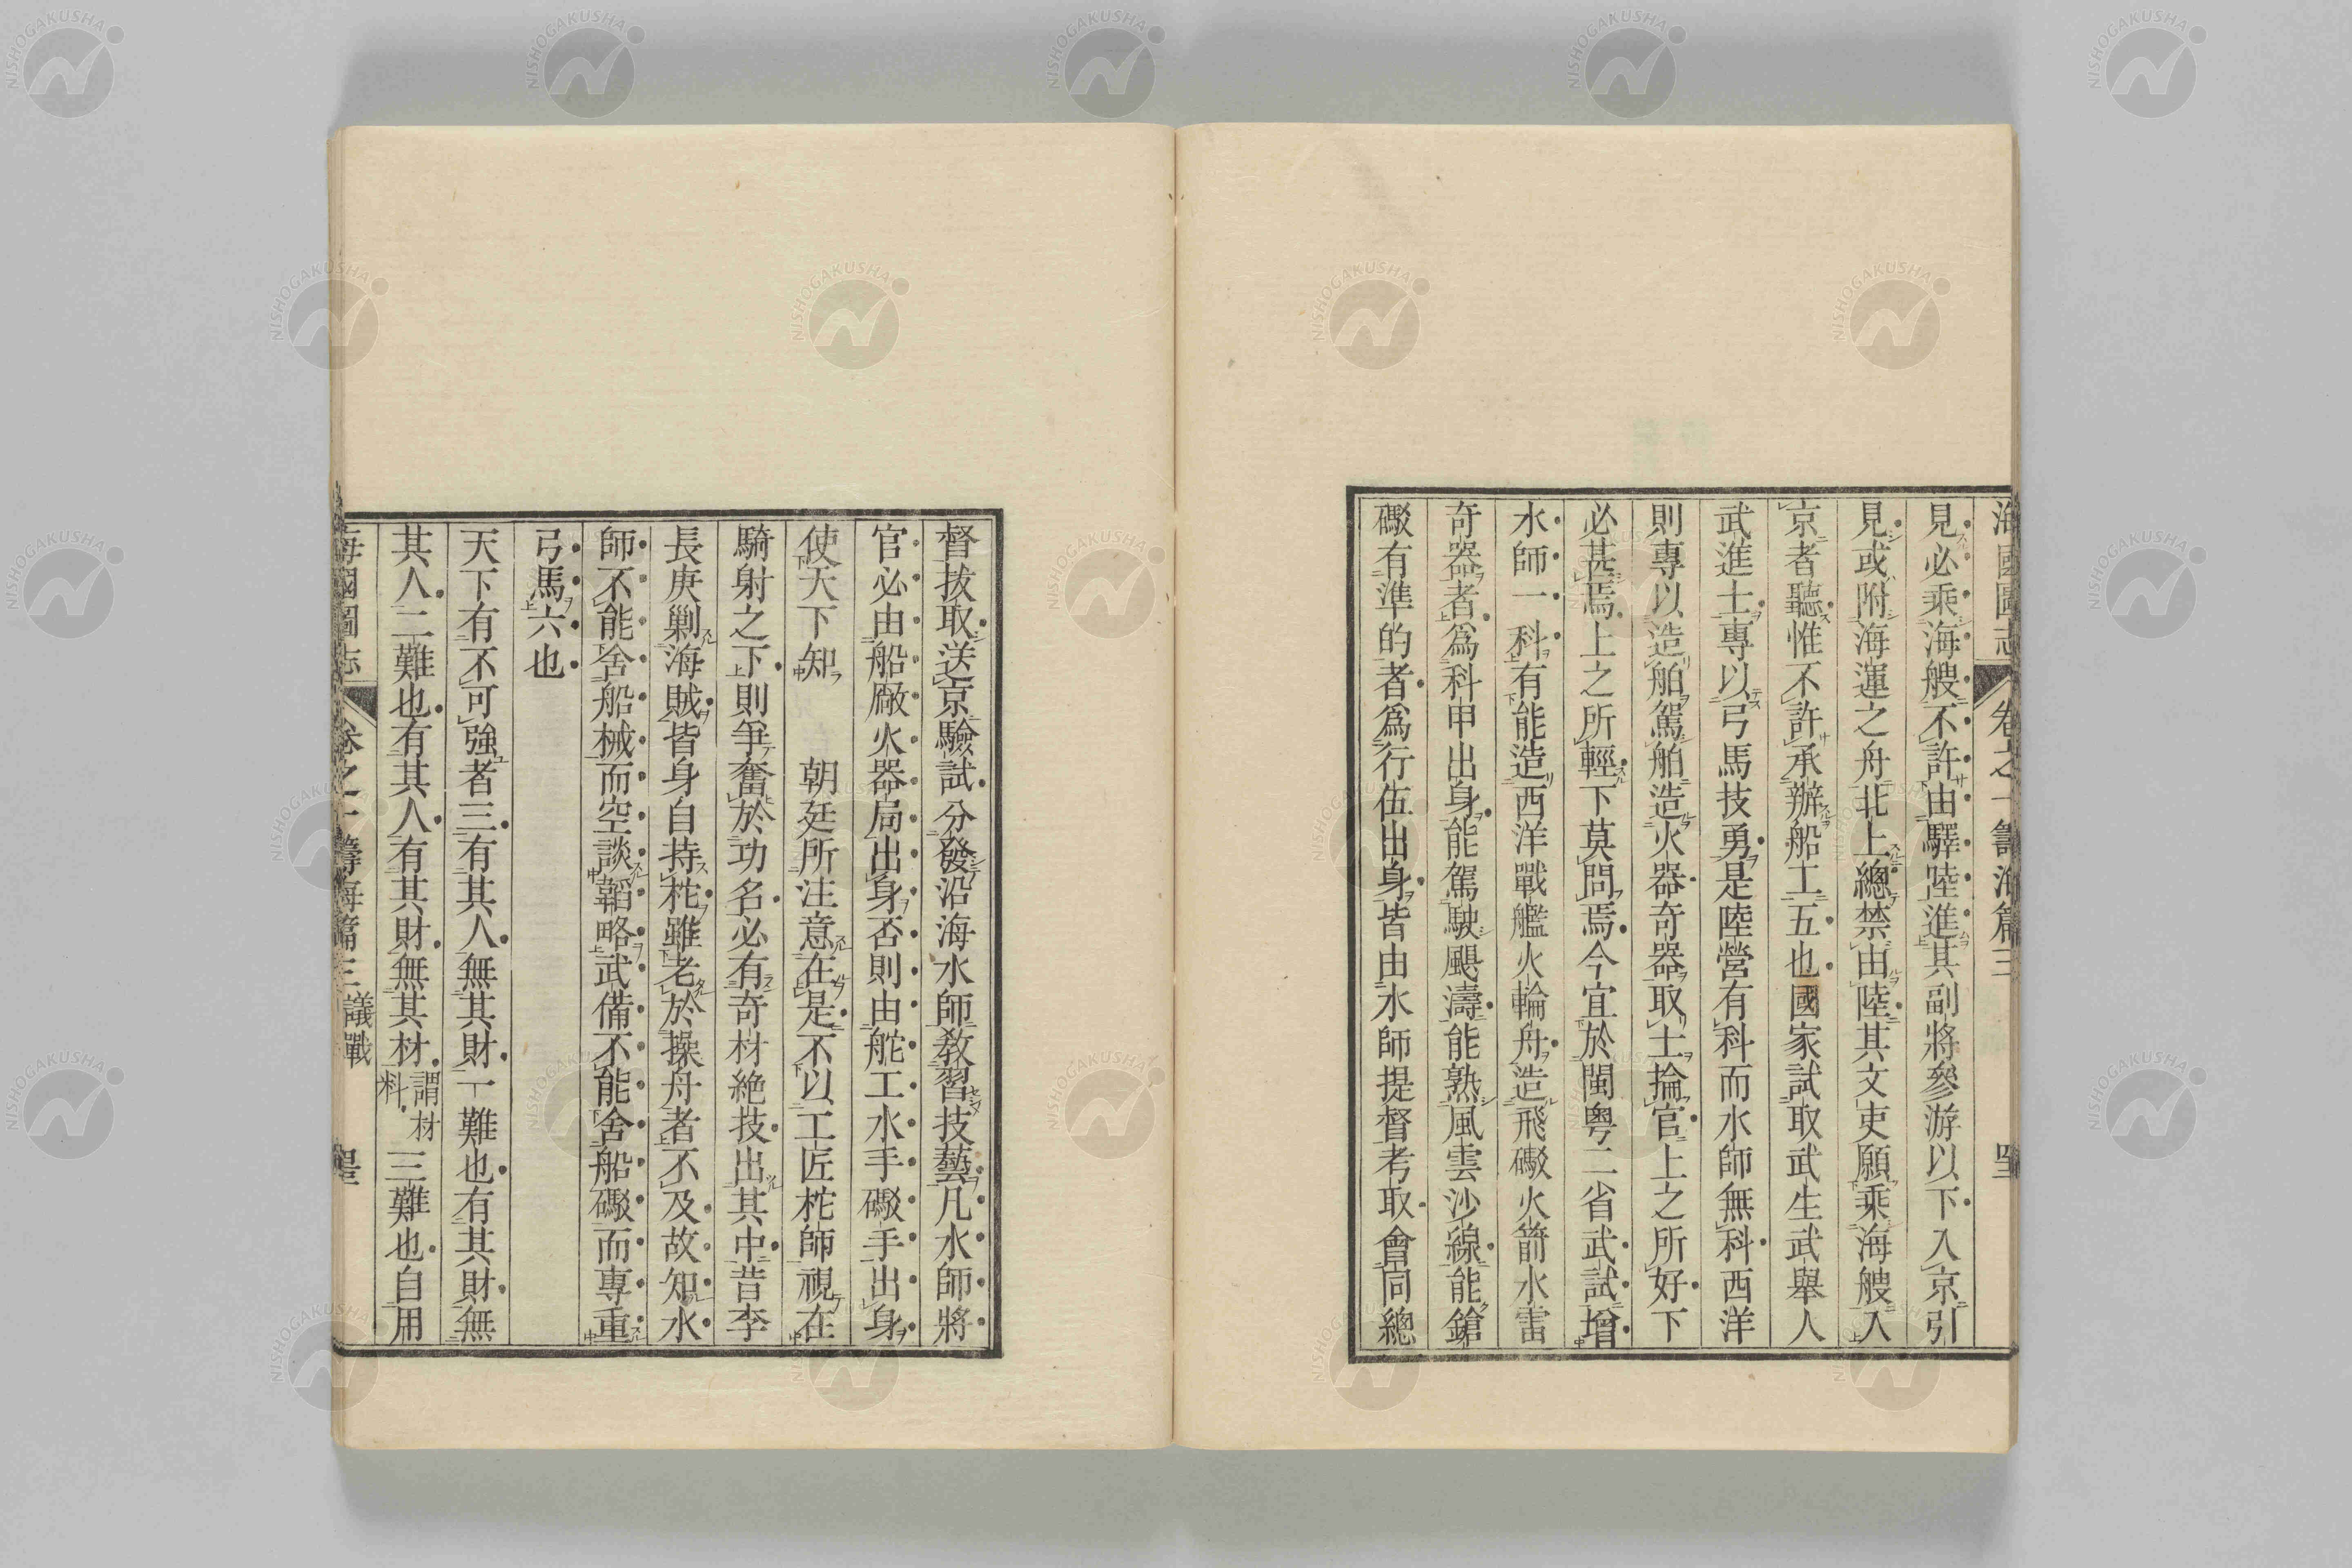 海國圖志 卷之一 籌海篇三
見必乘海艘不許由驛陸進其副將參游以下入京引
見或附海運之舟北上總禁由陸其文吏願乘海艘入
京者聽惟不許承辦船工五也國家試取武生武舉人
武進士專以弓馬技勇是陸營有科而水師無科西洋
則專以造舶駕舶造火器奇器取士掄官上之所好下
必甚焉上之所輕下莫問焉今宜於閩粤二省武試增
水師一科有能造西洋戰艦火輪舟造飛礮火箭水雷
奇器者爲科甲出身能駕駛颶濤能熟風雲沙線能鎗
礮有準的者爲行伍出身皆由水師提督考取會同總
督拔取送京驗試分發沿海水師敎習技藝凡水師將
官必由船廠火器局出身否則由舵工水手礮手出身
使天下知 朝廷所注意在是不以工匠柁師視在
騎射之下則爭奮於功名必有奇材絶技出其中昔李
長庚剿海賊皆身自持柁雖老於操舟者不及故知水
師不能舍船械而空談韜略武備不能舍船礮而專重
弓馬六也
天下有不可強者三有其人無其財一難也有其財無
其人二難也有其人有其財無其材謂材料三難也自用
海國圖志 卷之一 籌海篇三 議戰
NISHOGAKUSHA